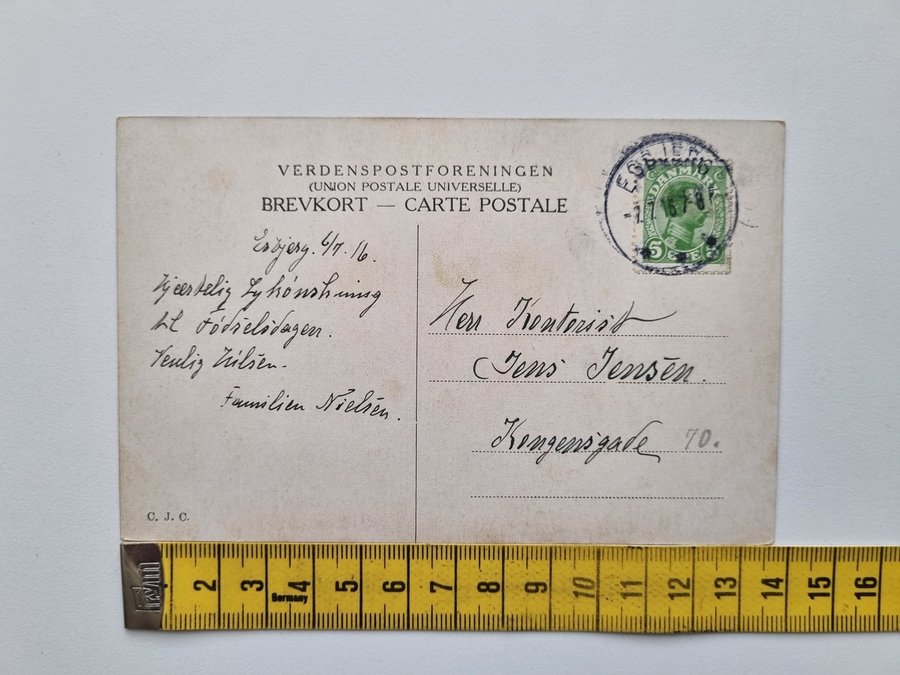 VERDENSPOSTFORENINGEN
(UNION POSTALE UNIVERSELLE)
BREVKORT — CARTE POSTALE
ESBJERG
-7.7.16 7-8
DANMARK
5 ØRE
Esbjerg. 6/7. 16.
Hjærtelig Lykónskning
til Fódselsdagen.
Venlig Hilsen.
Familien Nielsen.
Herr Kontorist
Jens Jensen.
Kongensgade 70.
C. J. C.
2 3 4 5 6 7 8 9 10 11 12 13 14 15 16
Germany